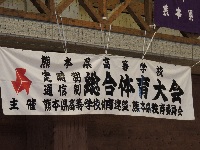 熊本県
熊本県高等学校
定時制
通信制
総合体育大会
主催 熊本県高等学校体育連盟・熊本県教育委員会